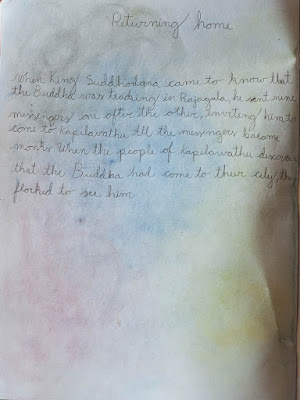 Returning home
When King Suddhodana came to know that
the Buddha was teaching in Rajagala, he sent nine
messengers one after the other inviting him to
come to Kapilawathu All the messengers became
monks When the people of Kapilawathu discover
that the Buddha had come to their city, they
flocked to see him